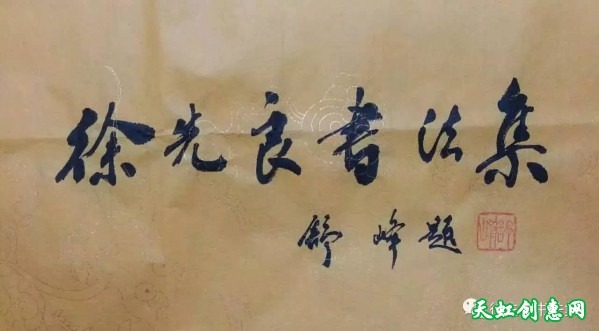 徐先良书法集
舒峰题
天虹创意网